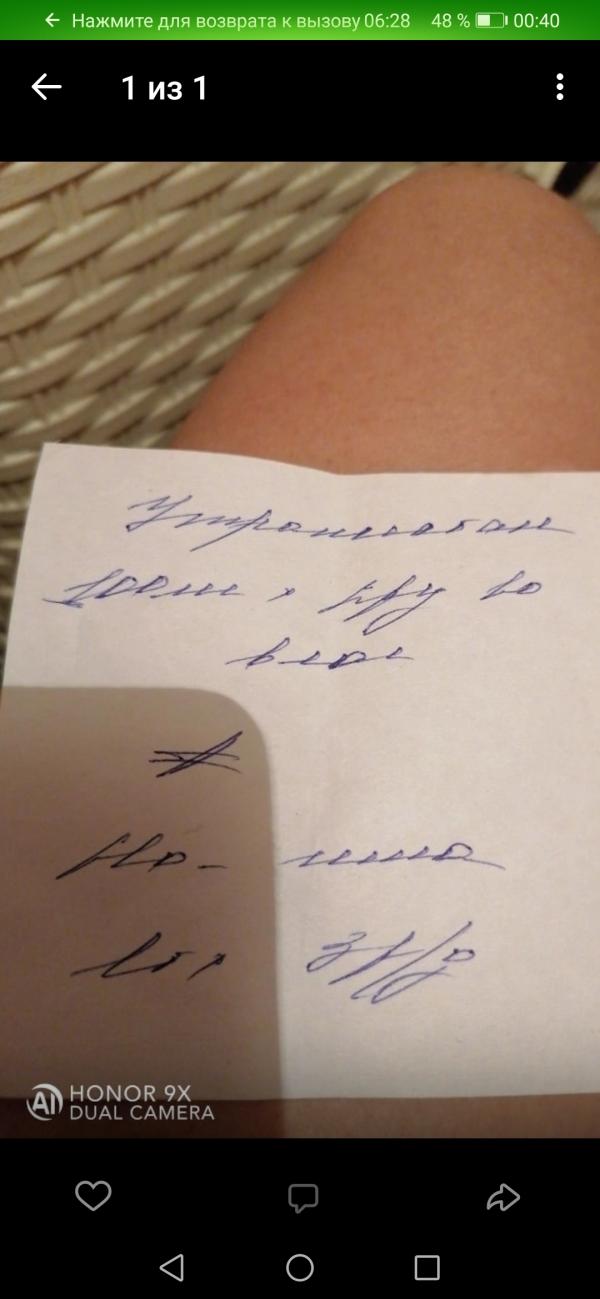 Нажмите для возврата к вызову 06:28 48 % 00:40
1 из 1
Утрожестан
100мг х 1р/у во
вл
Но-шпа
1т х 3р/д
AI HONOR 9X
DUAL CAMERA